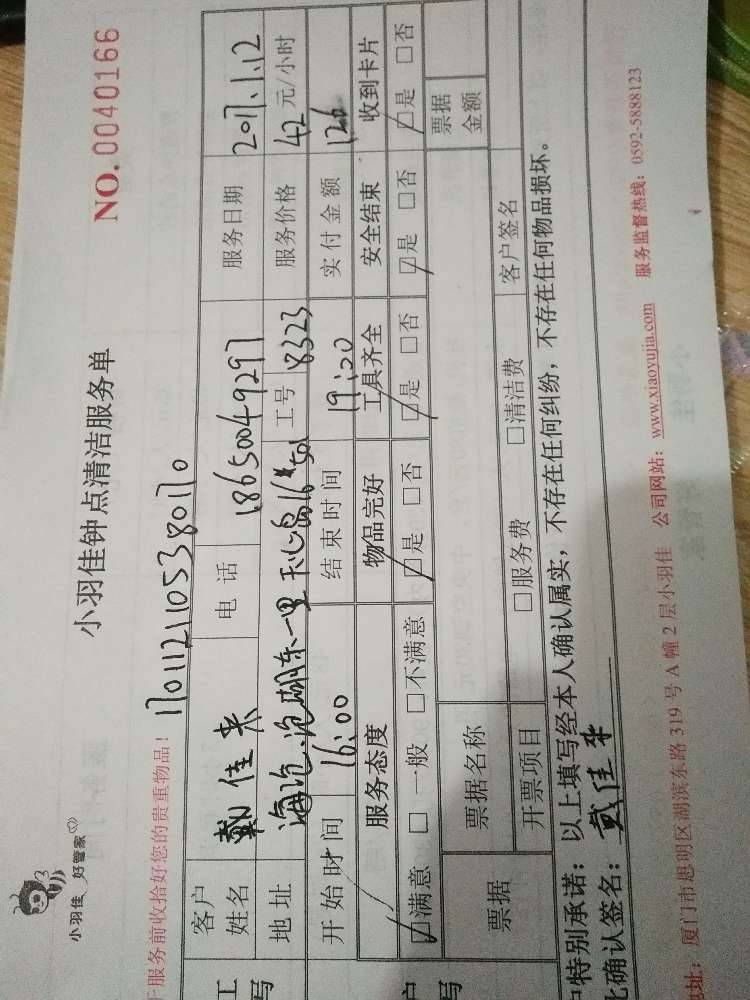 小羽佳 好管家
小羽佳钟点清洁服务单
NO.0040166
于服务前收拾好您的贵重物品!
1701121105380170
客户姓名 戴佳来 电话 18650049297 服务日期 2017.1.12
地址 海沧 沧湖东一里 工号 8323 服务价格 42元/小时
开始时间 16:00 结束时间 19:20 实付金额 126
服务态度 物品完好 工具齐全 安全结束 收到卡片
☑满意 □一般 □不满意 ☑是 □否 ☑是 □否 ☑是 □否 ☑是 □否
票据 票据名称 票据金额
开票项目 □服务费 □清洁费 客户签名
户特别承诺:以上填写经本人确认属实,不存在任何纠纷,不存在任何物品损坏。
此确认签名:戴佳来
址:厦门市思明区湖滨东路319号A幢2层小羽佳 公司网站:www.xiaoyujia.com 服务监督热线:0592-5888123